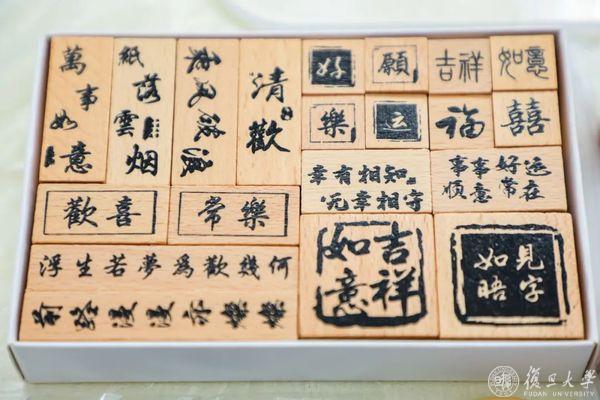 萬事如意
紙落雲烟
乘风破浪
清歡
好
願
吉祥
如意
樂
运
福
囍
幸有相知
无幸相守
事事好运
順意常在
歡喜
常樂
浮生若夢為歡幾何
漫漫亦燦燦
吉祥
如意
見字
如晤
復旦大學
FUDAN UNIVERSITY